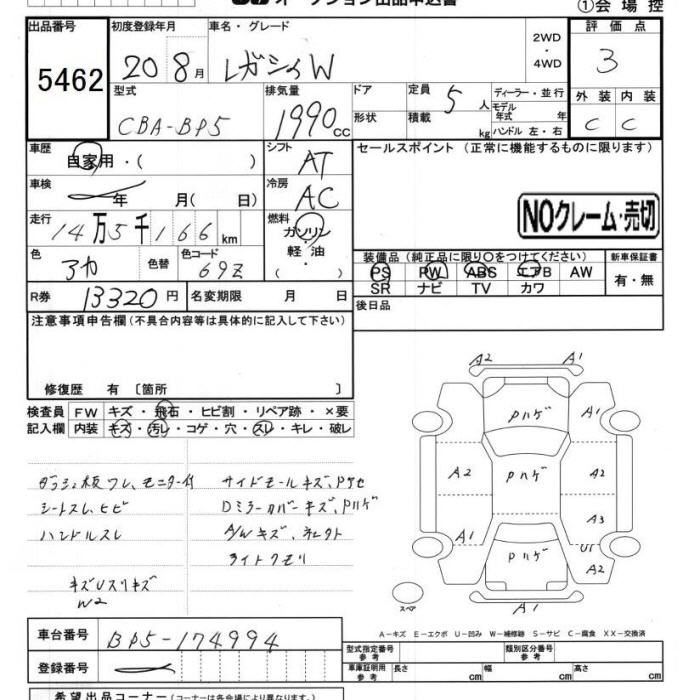 オークション出品申込書
①会場控
出品番号
5462
初度登録年月
20 8月
車名・グレード
レガシィW
2WD
・
4WD
評価点
3
型式
CBA-BP5
排気量
1990cc
ドア
形状
定員 5人
積載 kg
ディーラー・並行
モデル年式 年
ハンドル 左・右
外装 内装
C C
車歴
自家用・( )
シフト
AT
セールスポイント (正常に機能するものに限ります)
車検
年 月( 日)
冷房
AC
NOクレーム・売切
走行
14万5千166km
燃料
ガソリン
・
軽油
( )
色
アカ
色替
色コード
69Z
装備品(純正品に限り〇をつけてください)
新車保証書
PS PW ABS エアB AW
SR ナビ TV カワ
有・無
R券 13320円
名変期限 月 日
後日品
注意事項申告欄(不具合内容等は具体的に記入して下さい)
修復歴 有 〔箇所 〕
検査員記入欄
FW キズ・飛石・ヒビ割・リペア跡・×要
内装 キズ・汚レ・コゲ・穴・スレ・キレ・破レ
ダッシュ板ワレ、モニター付
シートスレ、ヒビ
ハンドルスレ
キズUスリキズ
W2
サイドモールキズ、Pケセ
Dミラーカバーキズ、Pハゲ
A/Wキズ、
ライトクモリ
A2 A1
Pハゲ
A1
A2
Pハゲ
A2
A3
A1
Pハゲ
U1
A2
A1
スペア
A-キズ E-エクボ U-凹み W-補修跡 S-サビ C-腐食 XX-交換済
車台番号
BP5-174994
登録番号
型式指定番号 参考
類別区分番号 参考
車庫証明用 参考
長さ cm 幅 cm 高さ cm
希望出品コーナー(コーナーは各会場により異なります。)